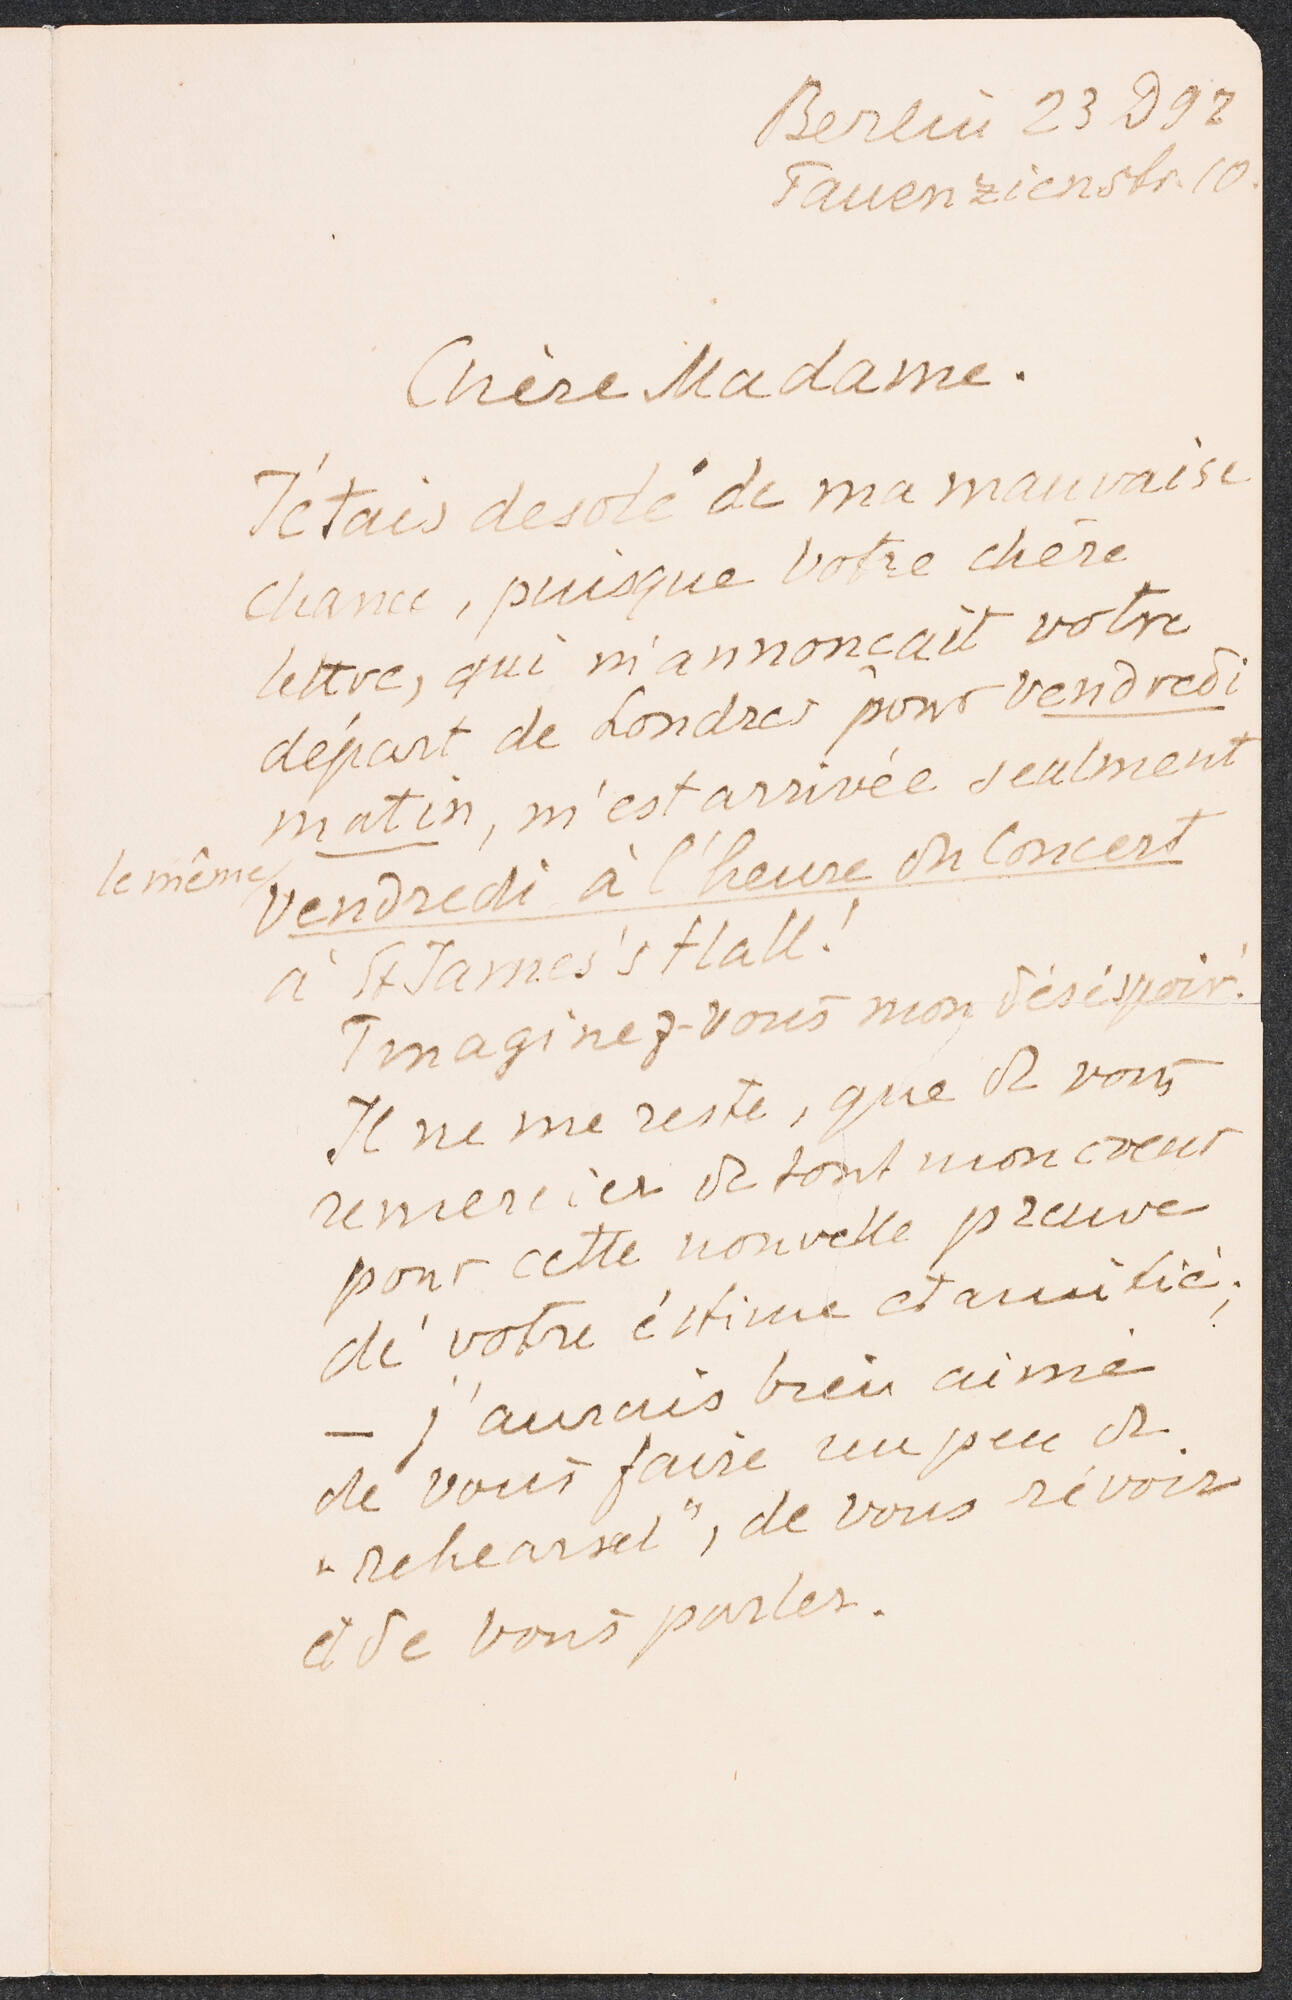 Berlin 23 D 97
Tauenzienstr. 10.
Chère Madame.
J'étais desolé de ma mauvaise
chance, puisque votre chère
lettre, qui m'annonçait votre
départ de Londres pour vendredi
matin, m'est arrivée seulment
le même vendredi à l'heure du Concert
à St James's Hall!
Imaginez-vous mon déséspoir!
Il ne me reste, que de vous
remercier de tout mon coeur
pour cette nouvelle preuve
dé votre éstime et amitié;
– j'aurais bien aimé
de vous faire un peu de
"rehearsel", de vous révoir
et de vous parler.